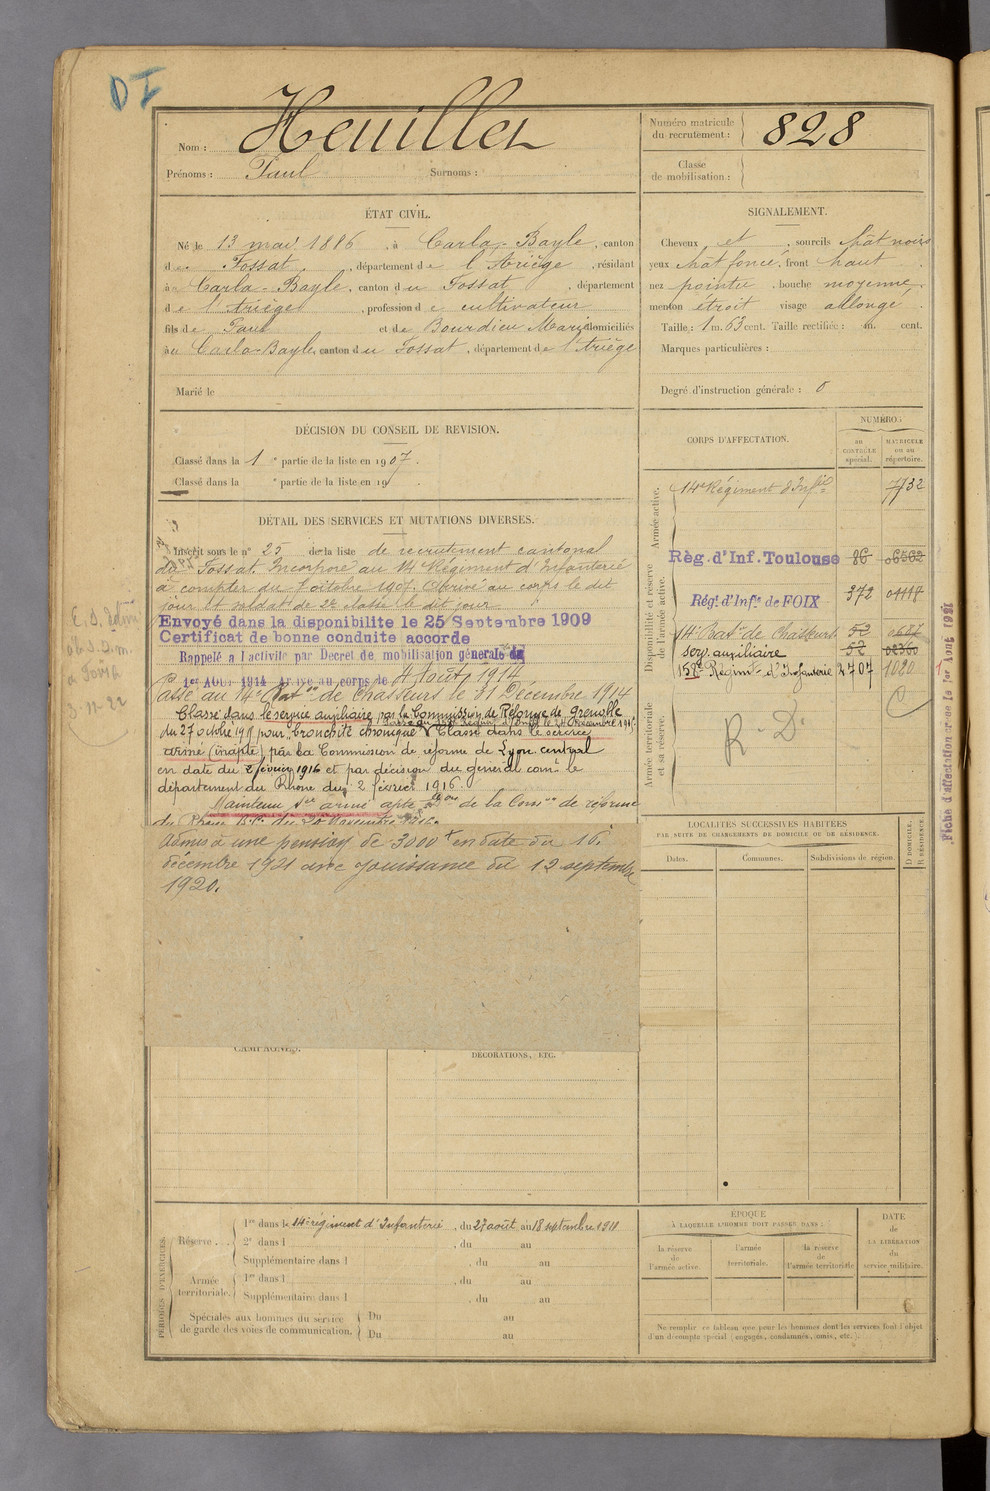 D I
Nom : Heuillet
Prénoms : Paul Surnoms :
Numéro matricule du recrutement : 828
Classe de mobilisation :
ÉTAT CIVIL.
Né le 13 mai 1886, à Carla-Bayle, canton
de Fossat, département de l'Ariège, résidant
à Carla-Bayle, canton du Fossat, département
de l'Ariège, profession de cultivateur
fils de Paul et de Bourdieu Marie domiciliés
à Carla-Bayle, canton du Fossat, département de l'Ariège
Marié le
SIGNALEMENT.
Cheveux et , sourcils chât noirs
yeux chât foncé, front haut
nez pointu, bouche moyenne,
menton étroit visage allongé
Taille : 1 m. 63 cent. Taille rectifiée : m. cent.
Marques particulières :
Degré d'instruction générale : 0
DÉCISION DU CONSEIL DE REVISION.
Classé dans la 1e partie de la liste en 1907.
Classé dans la e partie de la liste en 19 .
DÉTAIL DES SERVICES ET MUTATIONS DIVERSES.
Inscrit sous le n° 25 de la liste de recrutement cantonal
du Fossat. Incorporé au 14e Régiment d'Infanterie
à compter du 7 octobre 1907. Arrivé au corps le dit
jour et soldat de 2e classe le dit jour
Envoyé dans la disponibilite le 25 Septembre 1909
Certificat de bonne conduite accorde
Rappelé a l'activite par Decret de mobilisation générale du
1er AOUT 1914 Arrivé au corps le 4 Août 1914
Passé au 14e Baton de Chasseurs le 31 Décembre 1914
Classé dans le service auxiliaire par la Commission de Réforme de Grenoble
du 27 octobre 1915 pour "bronchite chronique" Classé dans le service
armé (inapte) par la Commission de réforme de Lyon central
en date du 2 février 1916 et par décision du général comt le
département du Rhône du 2 février 1916.
Maintenu Ser armé apte de la Comon de réforme
du Rhône du 20 Novembre 1916.
Admis à une pension de 3000 f en date du 16
décembre 1921 avec jouissance du 12 septembre
1920.
CAMPAGNES.
DÉCORATIONS, ETC.
CORPS D'AFFECTATION.
NUMÉROS
au contrôle spécial.
matricule ou au répertoire.
Armée active.
14e Régiment d'Infie 7732
Disponibilité et réserve de l'armée active.
Règ. d'Inf. Toulouse 86 06562
Régt d'Infie de FOIX 372 01118
14e Baton de Chasseurs 52 0687
Serv. auxiliaire 52 02360
158e Régimt d'Infanterie 2707 1020
Armée territoriale et sa réserve.
R. D.
LOCALITÉS SUCCESSIVES HABITÉES
PAR SUITE DE CHANGEMENTS DE DOMICILE OU DE RÉSIDENCE.
Dates. Communes. Subdivisions de région. D DOMICILE. R RÉSIDENCE.
Fiche d'affectation
PÉRIODES D'EXERCICES.
Réserve . . .
1re dans le 14e régiment d'Infanterie, du 27 août au 18 septembre 1911
2e dans l , du au
Supplémentaire dans l , du au
Armée territoriale.
1re dans l , du au
Supplémentaire dans l , du au
Spéciales aux hommes du service de garde des voies de communication.
Du au
Du au
ÉPOQUE
À LAQUELLE L'HOMME DOIT PASSER DANS :
la réserve de l'armée active.
l'armée territoriale.
la réserve de l'armée territoriale
DATE de LA LIBÉRATION du service militaire.
Ne remplir ce tableau que pour les hommes dont les services font l'objet
d'un décompte spécial (engagés, condamnés, omis, etc.).